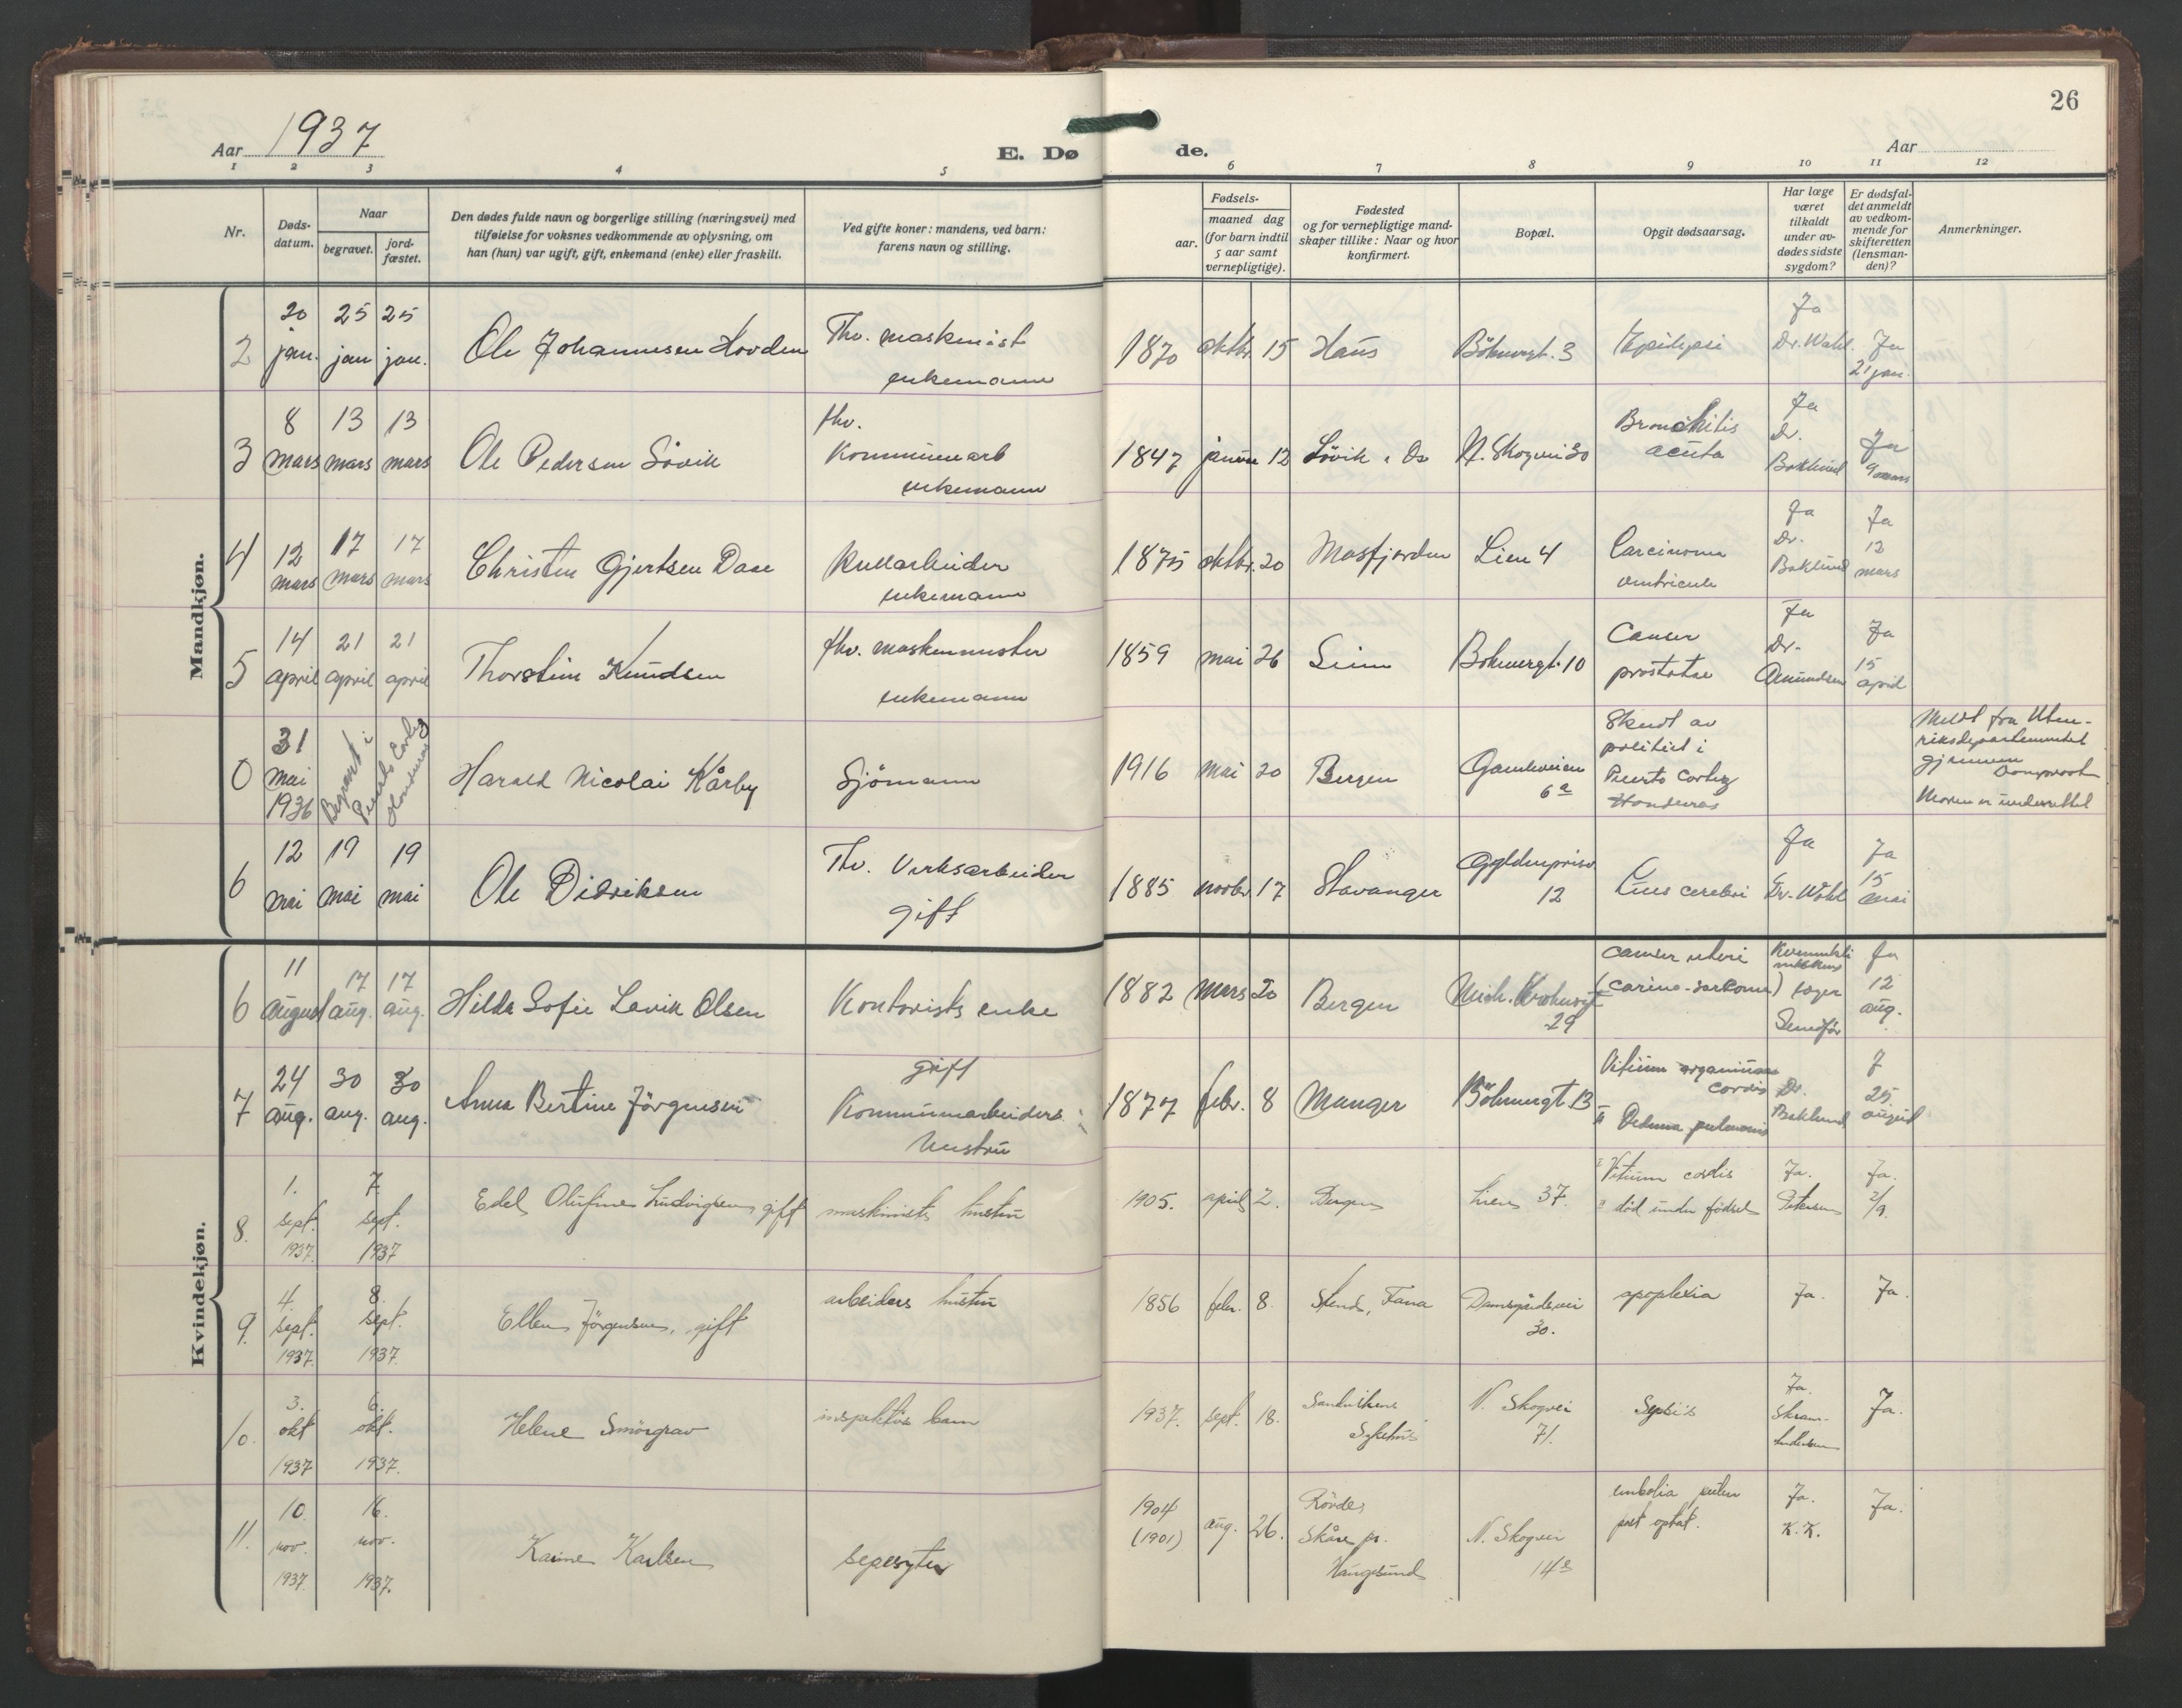 26
Aar 1937
E. Dø
de.
Aar
1 2 3 4 5 6 7 8 9 10 11 12
Nr.
Døds-
datum.
Naar
begravet.
jord-
fæstet.
Den dødes fulde navn og borgerlige stilling (næringsvei) med
tilføielse for voksnes vedkommende av oplysning, om
han (hun) var ugift, gift, enkemand (enke) eller fraskilt.
Ved gifte koner: mandens, ved barn:
farens navn og stilling.
Fødsels-
aar.
maaned dag
(for barn indtil
5 aar samt
vernepligtige).
Fødested
og for vernepligtige mand-
skaper tillike: Naar og hvor
konfirmert.
Bopæl.
Opgit dødsaarsag.
Har læge
været
tilkaldt
under av-
dødes sidste
sygdom?
Er dødsfal-
det anmeldt
av vedkom-
mende for
skifteretten
(lensman-
den)?
Anmerkninger.
Mandkjøn.
2
20
jan.
25
jan
25
jan.
Ole Johannesen Hovden
Thv. maskinist
enkemann
1870 oktbr. 15 Haus
Böhmergt. 3
Epilepsi
Ja
Dr. Wahl.
Ja
21 jan.
3
8
mars
13
mars
13
mars
Ole Pedersen Sövik
fhv.
Kommunearb
enkemann
1847 januar 12 Sövik, Os
N. Skogvei 30
Bronchitis
acuta
Ja
Dr.
Baklund
Ja
9 mars
4
12
mars
17
mars
17
mars
Christen Gjertsen Daae
Kullarbeider
enkemann
1875 oktbr. 20 Masfjorden
Lien 4
Carcinoma
ventriculi
Ja
Dr.
Baklund
Ja
12
mars
5
14
april
21
april
21
april
Thorstein Knudsen
fhv. maskinmester
enkemann
1859 mai 26 Seim
Böhmergt. 10
Cancer
prostatae
Ja
Dr.
Amundsen
Ja
15
april
0
31
mai
1936
Begravet i
Puerto Cortez
Honduras
Harald Nicolai Kårby
Sjömann
1916 mai 20 Bergen
Gamleveien
6a
Skudt av
politiet i
Puerto Cortez
Honduras
Meldt fra Uten-
riksdepartementet
gjennem
Domprost
Moren er underrettet
6
12
mai
19
mai
19
mai
Ole Didriksen
Thv. Verksarbeider
gift
1885 novbr. 17 Stavanger
Gyldenpriso
12
Lues cerebri
Ja
Dr. Wahl
Ja
15
mai
Kvindekjøn.
6
11
august
17
aug.
17
aug.
Hilda Sofie Lavik Olsen
Kontorists enke
1882 mars 20 Bergen
Mich. Krohnsgt
29
cancer uteri
(carino-sarkome)
Ja
12
aug.
7
24
aug.
30
aug.
30
aug.
Anna Bertine Jörgensen
gift
Kommunearbeiders
hustru
1877 febr. 8 Manger
Böhmergt. 13
Vitium organicum
cordis
II Oedema pulmonis
Dr.
Baklund
J
25
august
8.
1.
sept.
1937.
7.
sept.
1937
Edel Olufine Ludvigsen, gift
maskinists hustru
1905. april 2. Bergen
Lien 37.
I Vitium cordis
II död under födsel
Ja.
Petersen
Ja.
2/9.
9.
4.
sept.
1937.
8.
sept.
1937.
Ellen Jörgensen, gift
arbeiders hustru
1856 febr. 8. Stend, Fana
Damsgårdsvei
30.
apoplexia
Ja.
Ja.
10.
3.
okt
1937
6.
okt.
1937.
Helene Smörgrav
inspektörs barn
1937. sept. 18.
Sandvikens
Sykehus
N. Skogvei
71.
Sepsis
Ja.
Skram-
Andersen
Ja.
11.
10.
nov.
1937.
16.
nov.
1937.
Karine Karlsen
syerske
1904
(1901)
aug. 26.
Rövde,
Skåre pr.
Haugesund
N. Skogvei
14
embolia pulm
post optat.
Ja.
K.K.
Ja.